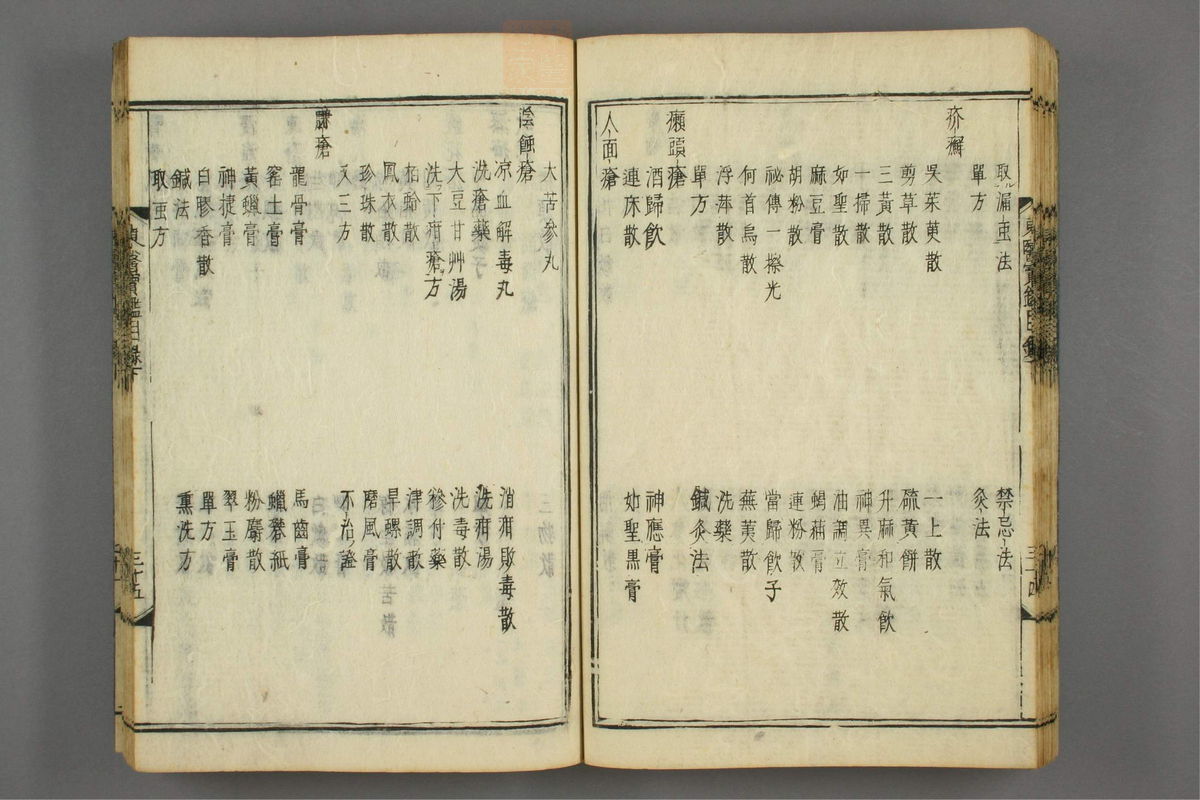 東醫寶鑑目錄
三十四
取漏䖝法 禁忌法
單方 灸法
疥癬
吳茱萸散 一上散
剪草散 硫黃餠
三黃散 升麻和氣飮
一掃散 神異膏
如聖散 油調立效散
麻豆膏
胡粉散 連粉散
祕傳一擦光 當歸飮子
何首烏散 蕪荑散
浮萍散 洗藥
單方 鍼灸法
癩頭瘡
酒歸飮 神應膏
連床散 如聖黑膏
人面瘡
大苦參丸
陰蝕瘡
凉血解毒丸 消疳敗毒散
洗瘡藥 洗疳湯
大豆甘艸湯 洗毒散
洗下疳瘡方 糝付藥
栢蛤散 津調散
鳳衣散 旱螺散
珍珠散 磨風膏
又三方 不治證
臁瘡
龍骨膏 馬齒膏
窰土膏 蠟礬紙
黃蠟膏 粉麝散
神捷膏 翠玉膏
白膠香散 單方
鍼法 熏洗方
取䖝方
東醫寶鑑目錄下
三十五